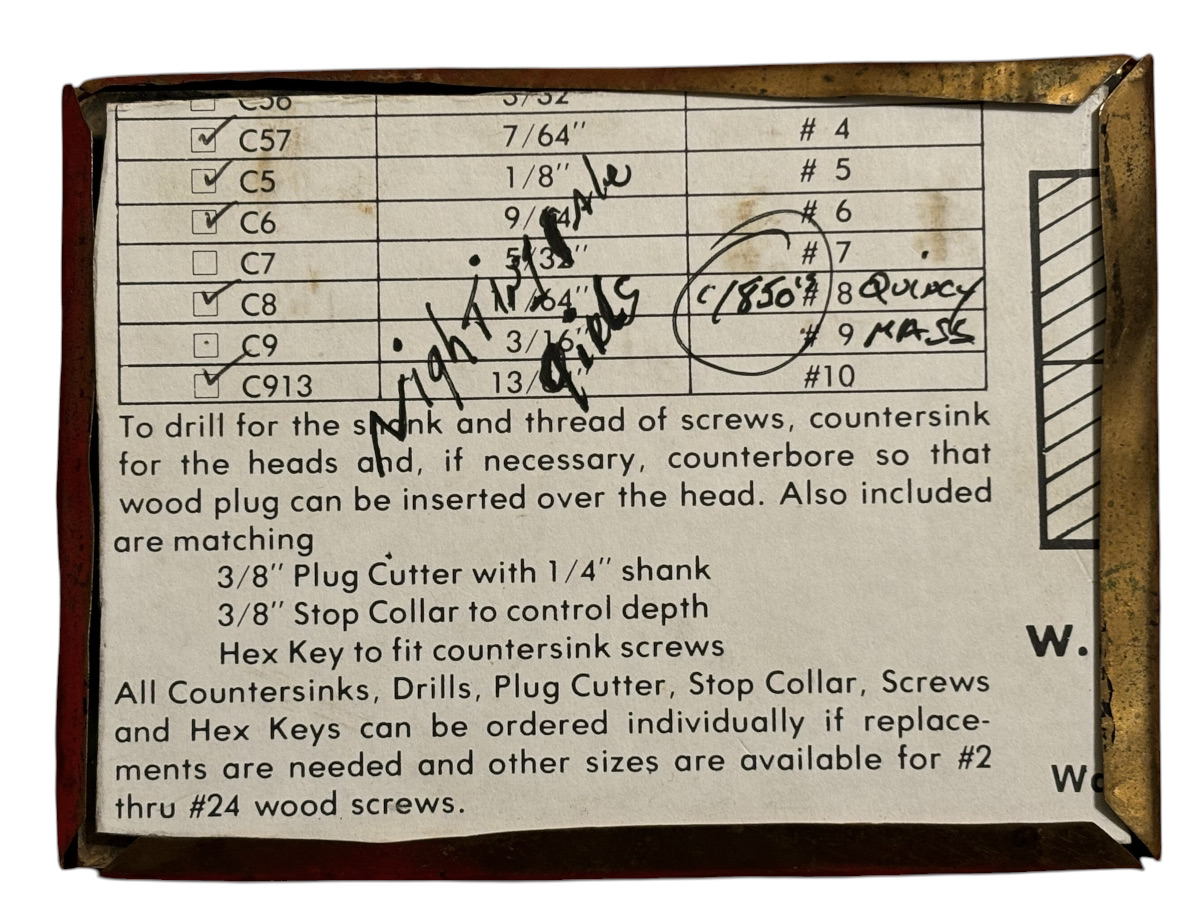 C56 3/32
C57 7/64" # 4
C5 1/8" # 5
C6 9/64" # 6
C7 5/32" # 7
C8 /64" # 8 QUINCY
C9 3/16" # 9 MASS
C913 13/ " #10
c/1850's
Nightingale
girls
To drill for the shank and thread of screws, countersink
for the heads and, if necessary, counterbore so that
wood plug can be inserted over the head. Also included
are matching
3/8" Plug Cutter with 1/4" shank
3/8" Stop Collar to control depth
Hex Key to fit countersink screws
All Countersinks, Drills, Plug Cutter, Stop Collar, Screws
and Hex Keys can be ordered individually if replace-
ments are needed and other sizes are available for #2
thru #24 wood screws.
W.